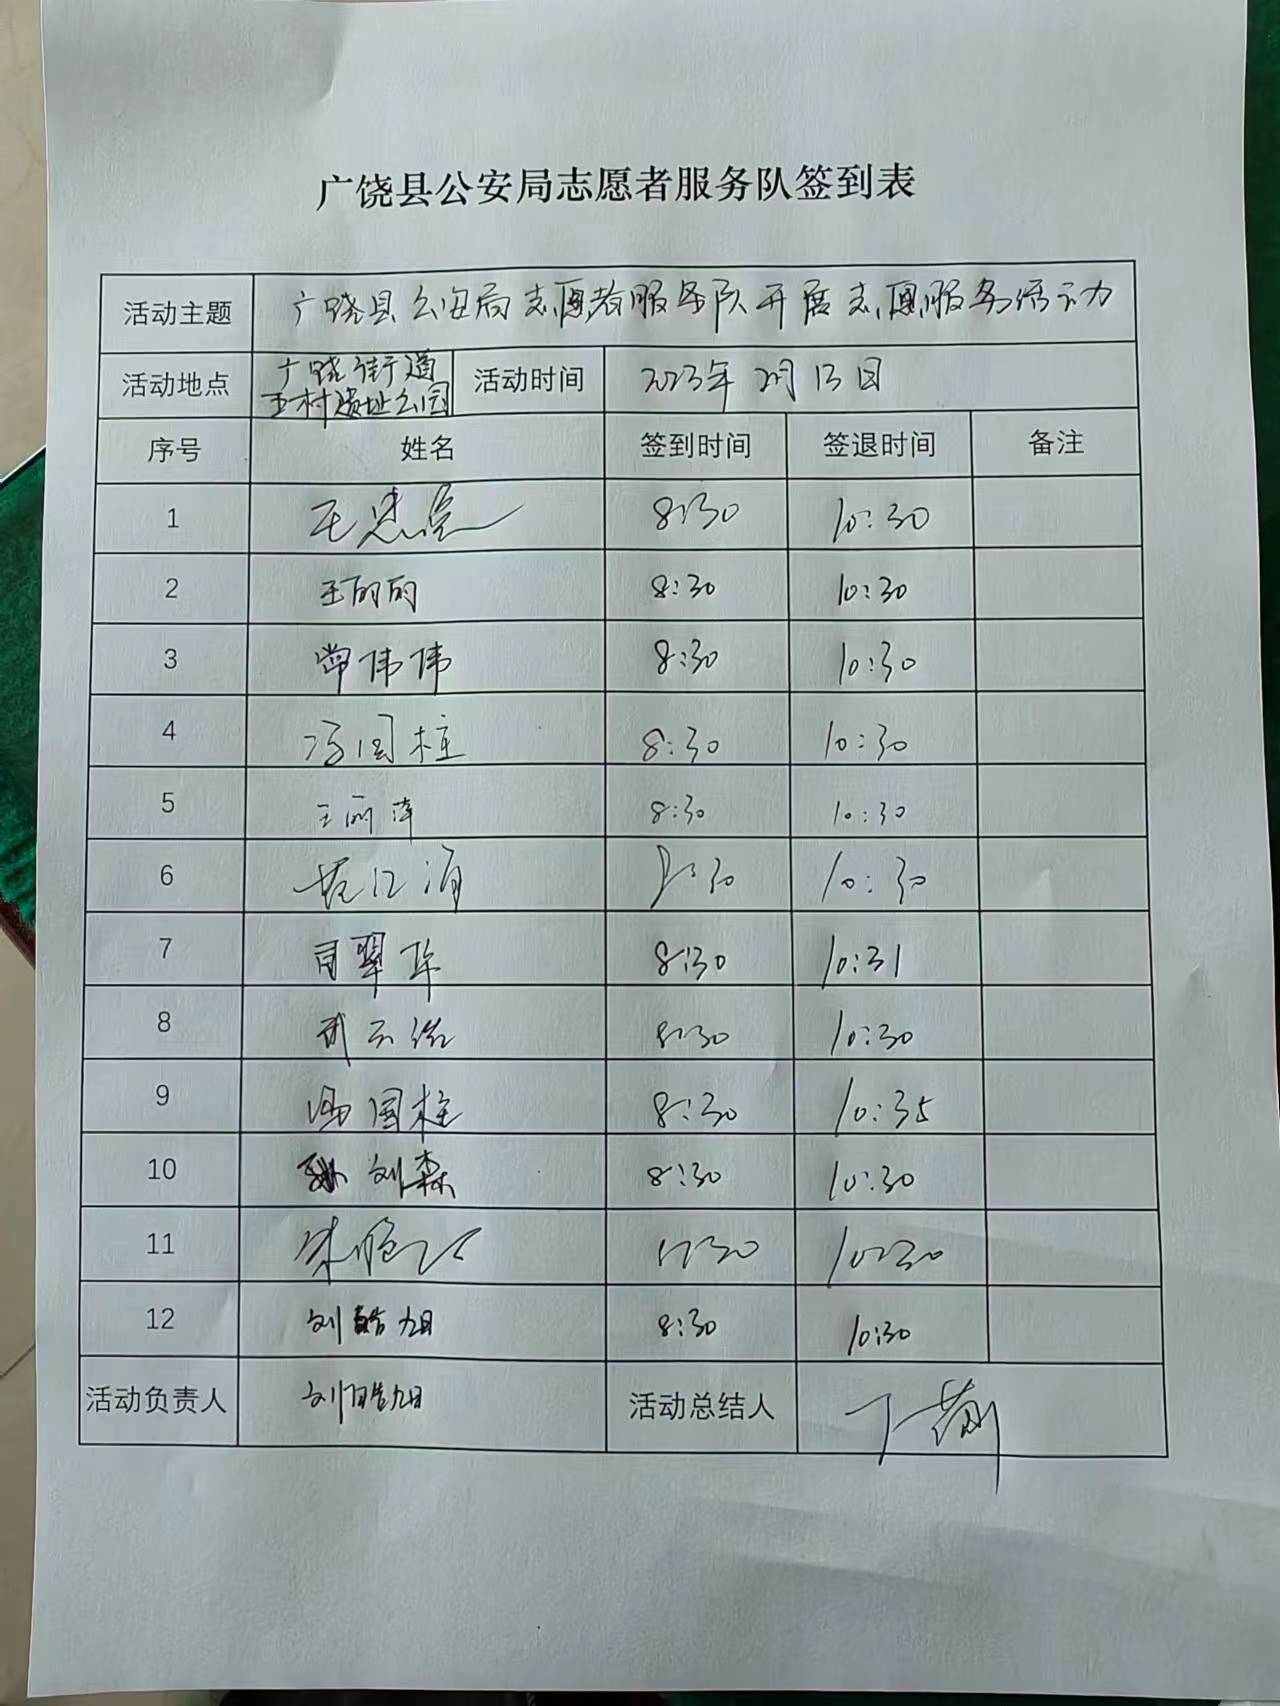 广饶县公安局志愿者服务队签到表
活动主题 广饶县公安局志愿者服务队开展志愿服务活动力
活动地点 广饶街道 活动时间 2023年2月13日
五村遗址公园
序号 姓名 签到时间 签退时间 备注
1 王忠 8:30 10:30
2 王的的 8:30 10:30
3 常伟伟 8:30 10:30
4 冯国柱 8:30 10:30
5 王丽萍 8:30 10:30
6 8:30 10:30
7 司翠华 8:30 10:31
8 武 8:30 10:30
9 冯国柱 8:30 10:35
10 刘森 8:30 10:30
11 8:30 10:30
12 刘皓旭 8:30 10:30
活动负责人 刘皓旭 活动总结人 丁